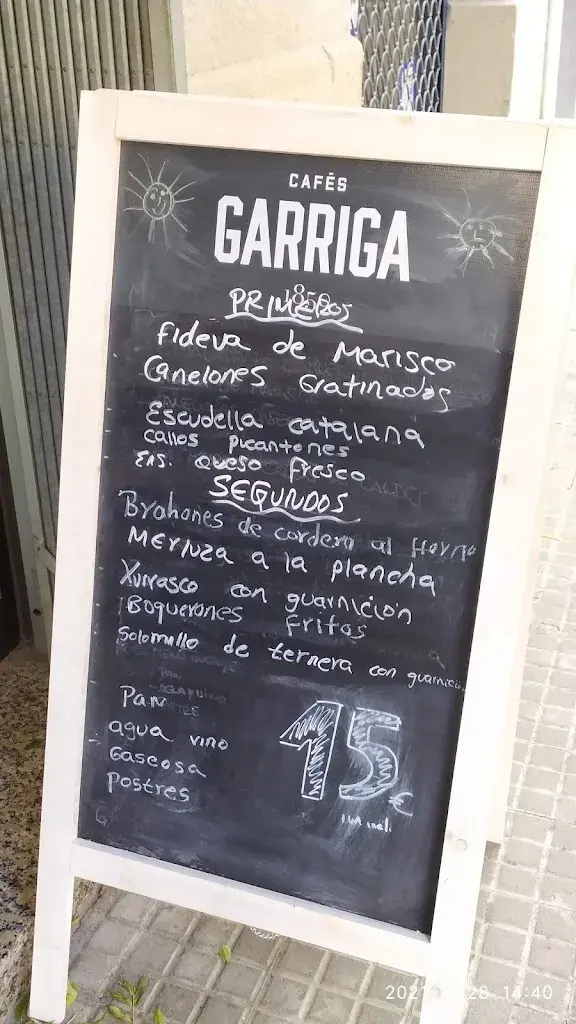 CAFÉS
GARRIGA
1850
PRIMEROS
Fideva de Marisco
Canelones Gratinados
Escudella catalana
callos picantones
Ens. queso fresco
SEGUNDOS
Brahones de cordero al Horno
Merluza a la plancha
Xurrasco con guarnición
Boquerones Fritos
Solomillo de ternera con guarnición
Pan
agua vino
Gaseosa
postres
15€
IVA incl.
14:40